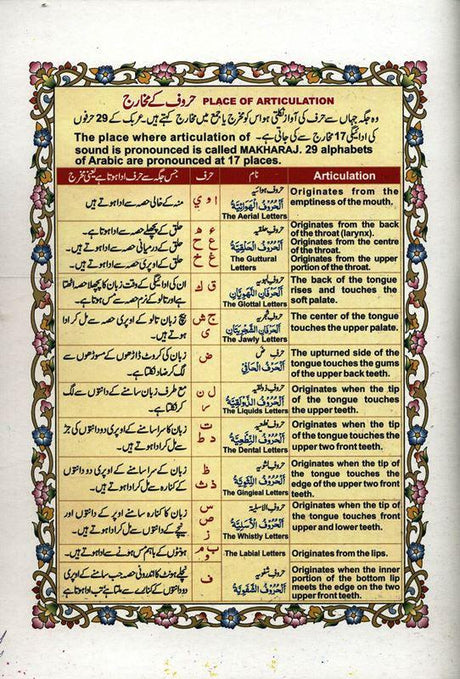 حروف کے مخارج PLACE OF ARTICULATION
وہ جگہ جہاں سے حرف کی آواز نکلتی ہو اس کو مخرج یا جمع میں مخارج کہتے ہیں۔ عربی کے 29 حرفوں
کی ادائیگی 17 مخارج سے کی جاتی ہے۔ The place where articulation of
sound is pronounced is called MAKHARAJ. 29 alphabets
of Arabic are pronounced at 17 places.
جس جگہ سے حرف ادا ہوتا ہے یعنی مخرج حرف نام Articulation
منہ کے خالی حصہ سے ادا ہوتے ہیں
ا و ي
حروف ہوائیہ
اَلْحُرُوْفُ الْهَوَائِيَّةُ
The Aerial Letters
Originates from the
emptiness of the mouth.
حلق کے پچھلے حصہ سے ادا ہوتا ہے۔
حلق کے درمیانی حصہ سے ادا ہوتے ہیں۔
حلق کے اوپری حصہ سے ادا ہوتے ہیں۔
ء ھ
ع ح
غ خ
حروف حلقیہ
اَلْحُرُوْفُ الْحَلْقِيَّةُ
The Guttural
Letters
Originates from the back
of the throat (larynx).
Originates from the centre
of the throat.
Originates from the upper
portion of the throat.
ان کی ادائیگی کے وقت زبان کا پچھلا حصہ اٹھتا
ہے اور تالو کے نرم حصہ سے مس ہوتا ہے۔
ق ك
اَلْحَرْفَانِ اللَّهَوِيَّانِ
The Glottal Letters
The back of the tongue
rises and touches the
soft palate.
بیچ زبان تالو کے اوپری حصہ سے مل کر ادا
ہوتے ہیں۔
ج ش
ي
The Jawly Letters
The center of the tongue
touches the upper palate.
زبان کی کروٹ داڑھوں کے مسوڑھوں سے
لگ کر ضاد نکلتا ہے۔
ض
حرف ض
اَلْحَرْفُ الْحَافِيُّ
The upturned side of the
tongue touches the gums
of the upper back teeth.
مع طرف زبان سامنے کے دانتوں سے لگ
کر نکلتا ہے۔
ل ن
ر
The Liquids Letters
Originates when the tip
of the tongue touches
the upper teeth.
زبان سامنے کے اوپر کے دو دانتوں کی جڑ
سے مل کر ادا ہوتے ہیں۔
ت
د ط
اَلْحُرُوْفُ النِّطْعِيَّةُ
The Dental Letters
Originates when the tip
of the tongue touches the
upper two front teeth.
زبان کے سرا سامنے کے اوپری دو دانتوں
کے کنارہ سے مل کر ادا ہوتے ہیں۔
ظ
ذ ث
The Gingieal Letters
Originates when the tip of
the tongue touches the
edge of the upper two front
teeth.
زبان کا سرا سامنے کے اوپر کے دانتوں اور
نیچے کے دانتوں سے مل کر ادا ہوتے ہیں۔
س
ص
ز
The Whistly Letters
Originates when the tip
of the tongue touches front
upper and lower teeth.
ہونٹوں کے باہم مس ہونے سے ادا ہوتے ہیں۔
ب م
و
The Labial Letters
Originates from the lips.
نچلے ہونٹ کا اندرونی حصہ جب سامنے کے اوپری
دو دانتوں کے کنارے سے ملتا ہے تب ادا ہوتا ہے
ف
حروف شفویہ
اَلْحُرُوْفُ الشَّفَوِيَّةُ
Originates when the inner
portion of the bottom lip
meets the edge on the two
upper front teeth.